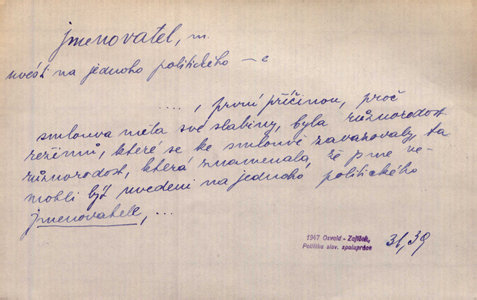 jmenovatel, m.
uvésti na jednoho politického – e
...., první příčinou, proč
smlouva měla své slabiny, byla různorodost
režimů, které se ke smlouvě zavazovaly, ta
různorodost, která znamenala, že jsme ne-
mohli být uvedeni na jednoho politického
jmenovatele, ...
1947 Osvald - Zajíček,
Politika slov. spolupráce
31,39